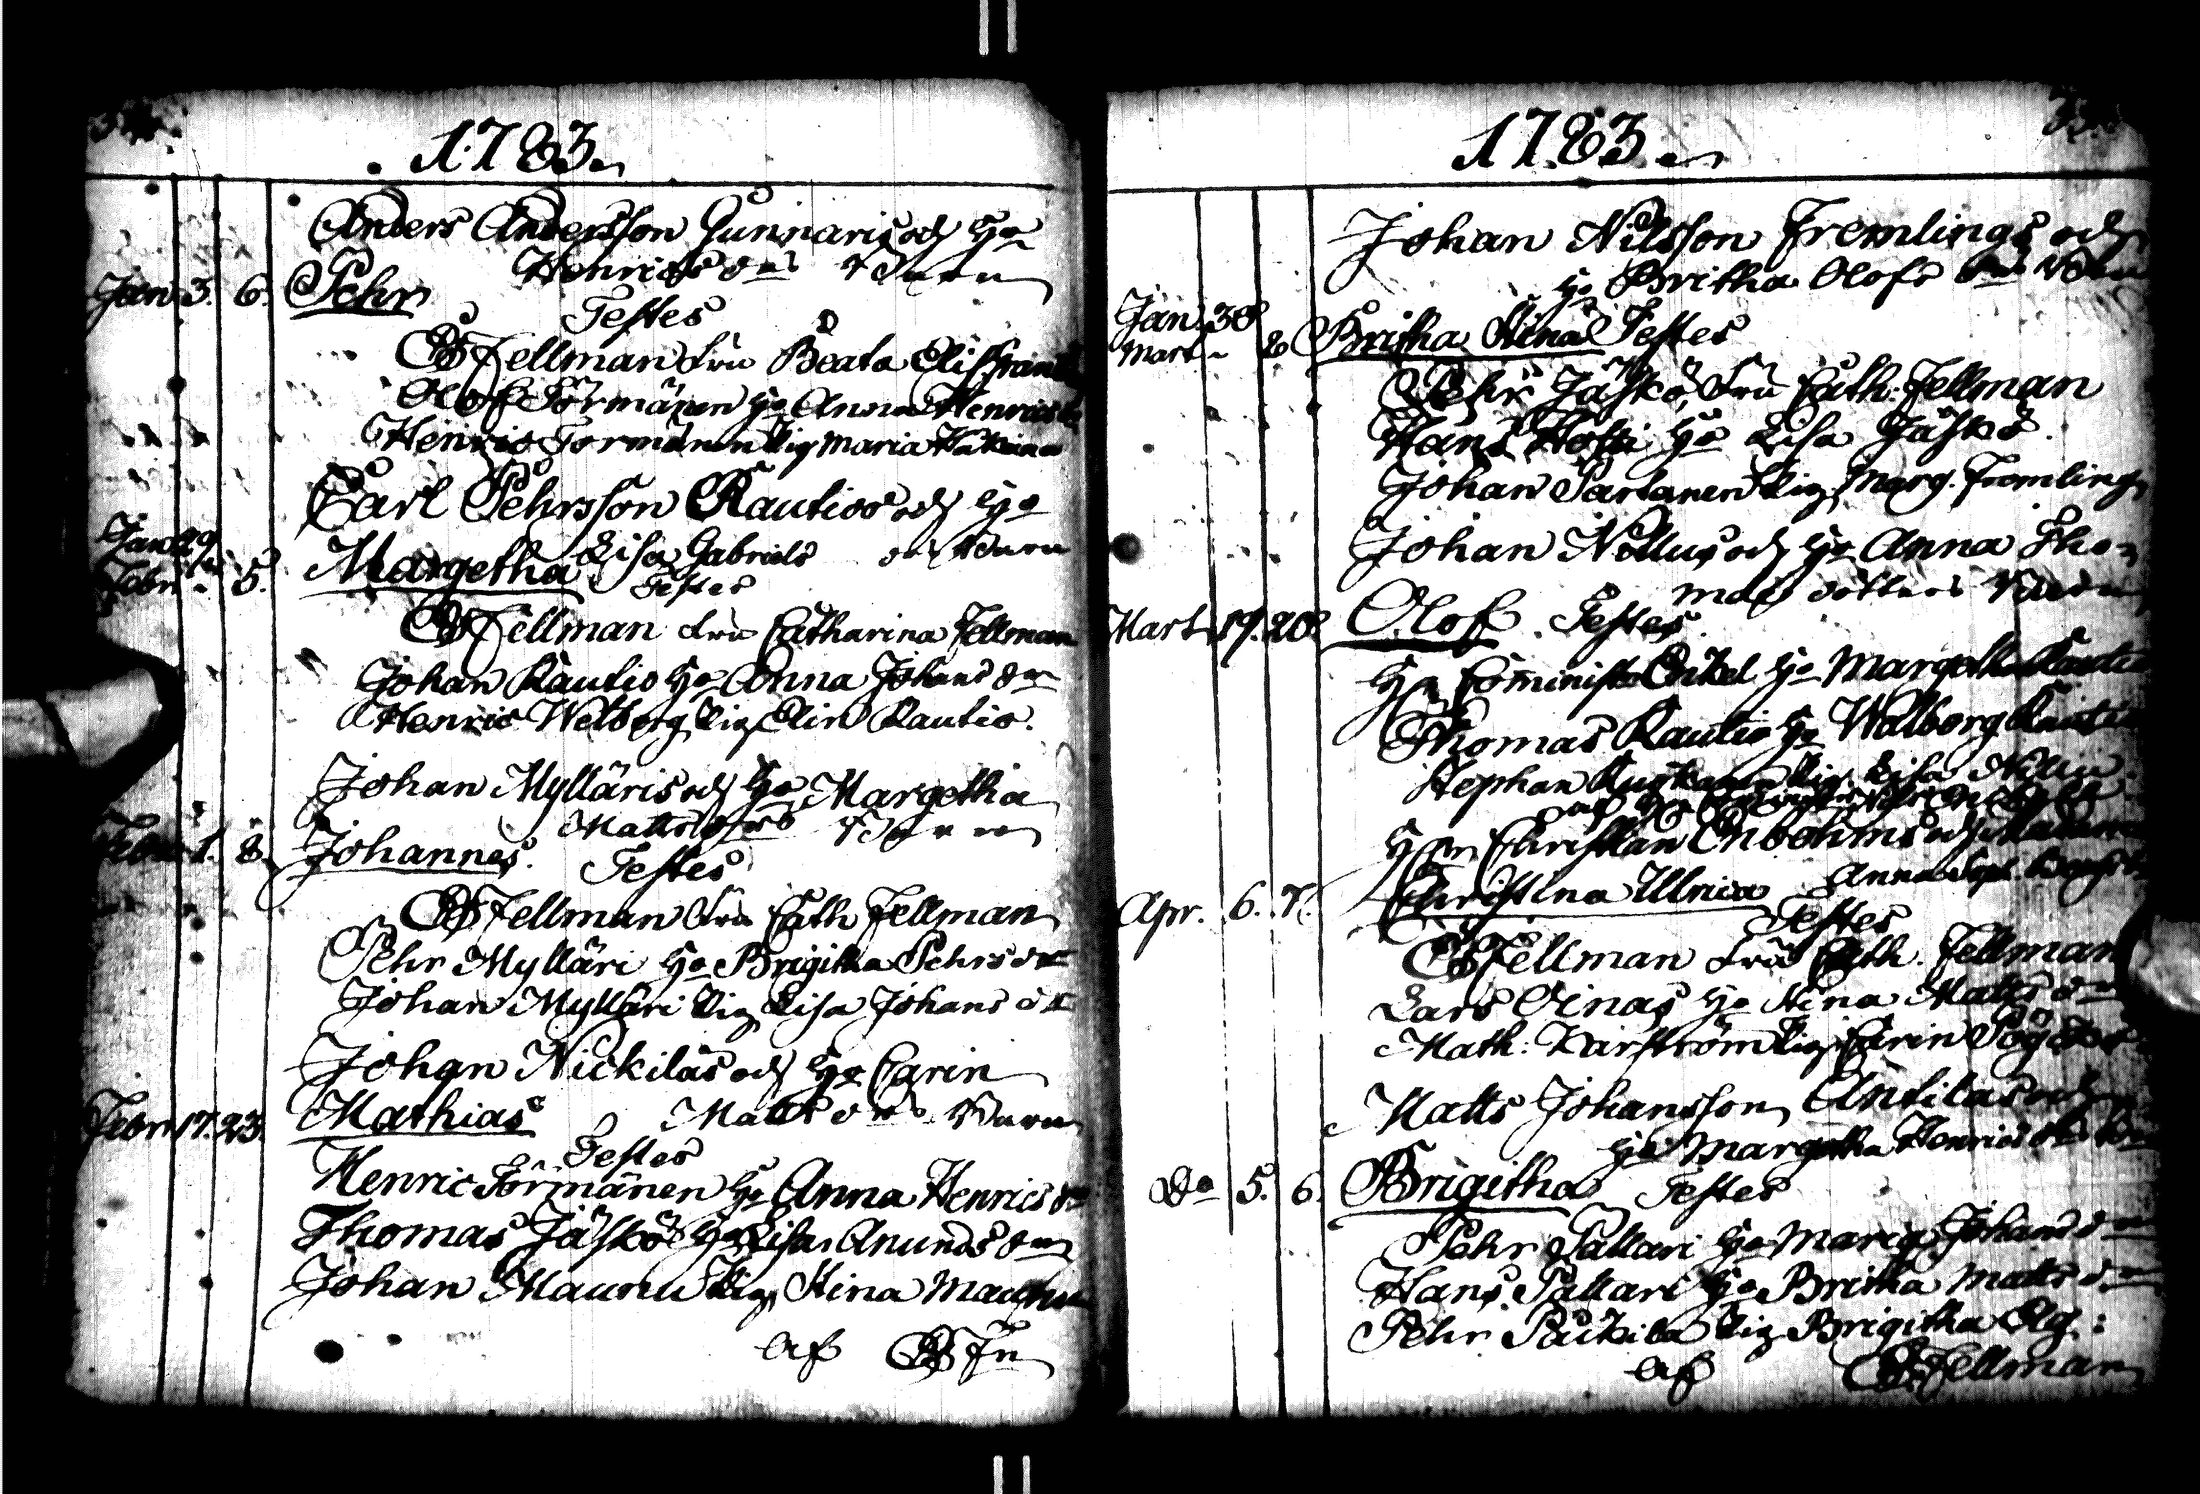 1783.
Anders Andersson Gunnaris och H:o
Henrics d:rs Barn
Jan 3. 6. Pehr
Testes
EJFellman Fru Beata Elis
Olof Törmänen H:o Anna Henrics d:r
Henric Tormänen Pig Maria
Carl Pehrsson Rautios och H:o
Jan 29
Lisa Gabriels d:rs Barn
Febr. 5. Margetha
Testes
EJFellman Fru Catharina Fellman
Johan Rautio H:o Anna Johans d:r
Henric Welberg Pig Elin Rautio.
Johan Mylläris och H:o Margetha
Matts d:rs Barn
Febr. 1. 8. Johannes.
Testes
EJFellman Fru Cath Fellman
Pehr Mylläri H:o Brigitha Pehrs d:r
Johan Mylläri Pig Lisa Johans d:r
Johan Nickilas och H:o Carin
Febr. 17. 23. Mathias Matts d:rs Barn
Testes
Henric Törmänen H:o Anna Henrics d:r
Thomas Jäskö H:o Lisa Anunds d:r
Johan Maunu Pig Stina Maunu
af EJFn
1783.
Johan Nilsson Fremlings och
H:o Britha Olofs d:rs Barn
Jan. 30
Mart. 2 Britha Stina Testes
Pehr Jäskö, Fru Cath: Fellman
Hans H:o Lisa Jäskö.
Johan Partanen Pig Marg. Fremling
Johan Nillus och H:o Anna Tho-
mas dotters Barn
Mart. 19. 20. Olof. Testes.
H:r Comminist. Enkel H:o Margetha Rautio
Thomas Rautio H:o Walborg Rautio
Stephan Pig. Lisa Nillu.
H:r Christian Enbohms och Madame
Anna
Apr. 6. 7. Christina Ulrica
Testes
EJFellman Fru Cath. Fellman
Lars Oinas H:o Stina Matts d:r
Math: Karström Pig Carin
Matts Johansson Antilas och
H:o Margetha Henrics d:rs Barn
D:o 5. 6. Brigitha Testes
Pehr Pallari H:o Maria Johans d:r
Hans Pallari H:o Britha Matts d:r
Pehr Pig Brigitha
af EJFellman